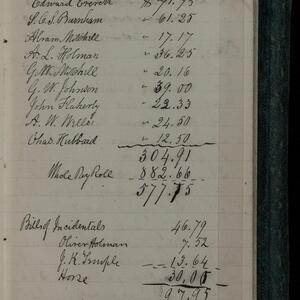 Edward Everett " 71.75
S. C. S. Burnham " 61.25
Abram Mitchell " 17.17
A. L. Holman " 36.25
G. W. Mitchell " 20.16
G. W. Johnson " 39.00
John Flaherty " 22.33
A. W. Wells " 24.50
Chas. Hubbard " 12.50
304.91
Whole Pay Roll 882.66
577.75
Bill of Incidentals 46.79
Oliver Holman 7.52
J. K. Temple 13.64
Horse 30.00
97.95